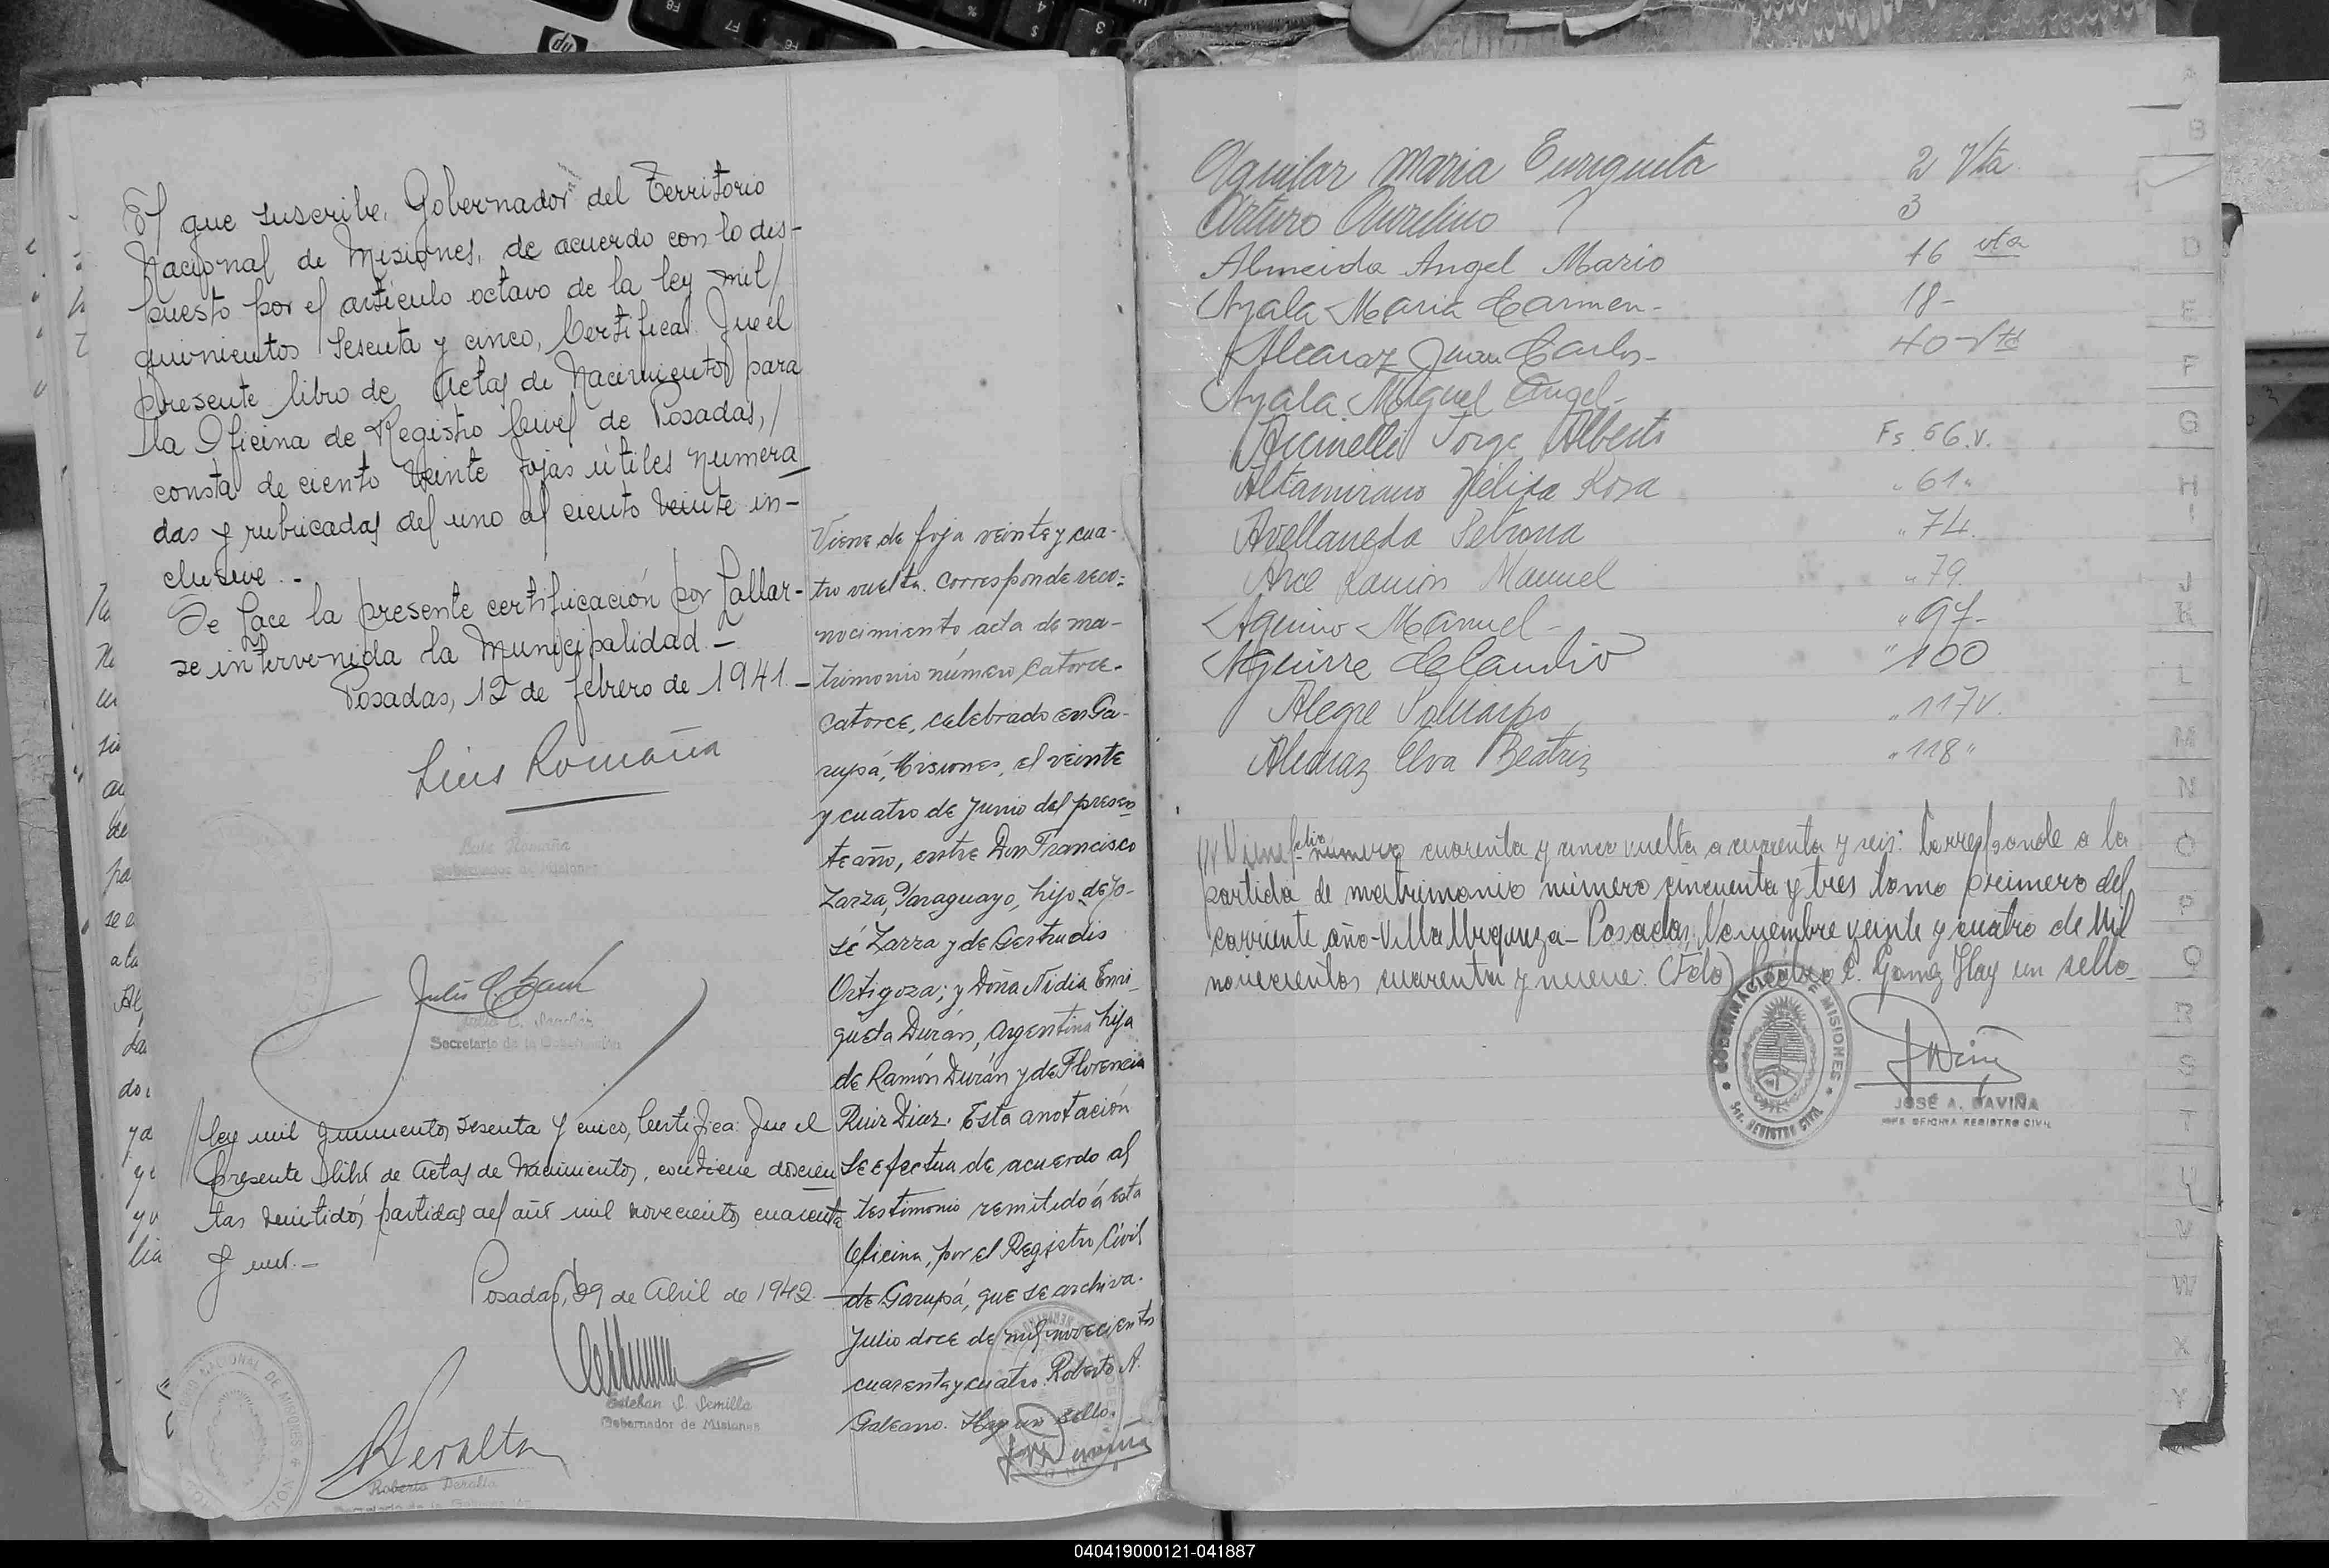 El que suscribe, Gobernador del Territorio
Nacional de Misiones, de acuerdo con lo dis-
puesto por el artículo octavo de la ley mil
quinientos sesenta y cinco, Certifica: Que el
presente libro de Actas de Nacimientos para
la Oficina de Registro Civil de Posadas,
consta de ciento veinte fojas útiles numera
das y rubricadas del uno al ciento veinte in-
clusive.-
Se hace la presente certificación por hallar-
se intervenida la Municipalidad.-
Posadas, 12 de febrero de 1941.-
Luis Romaña
Luis Romaña
Gobernador de Misiones
Secretario de la Gobernación
ley mil quinientos sesenta y cinco, Certifica: Que el
presente libro de Actas de Nacimientos, contiene doscien
tas veintidós partidas del año mil novecientos cuarenta
y uno.-
Posadas, 29 de Abril de 1942.-
Esteban S. Semilla
Gobernador de Misiones
RPeralta
Roberto Peralta
Viene de foja veinte y cua-
tro vuelta. Corresponde reco=
nocimiento acta de ma-
trimonio número catorce-
catorce, celebrado en Ga-
rupá, Misiones, el veinte
y cuatro de Junio del presen
te año, entre Don Francisco
Zarza, Paraguayo, hijo de Jo-
sé Zarza y de Gertrudis
Ortigoza; y Doña Nidia Enri-
queta Durán, Argentina hija
de Ramón Durán y de Florencia
Ruiz Diaz. Esta anotación
se efectua de acuerdo al
testimonio remitido á esta
Oficina, por el Registro Civil
de Garupá, que se archiva.
Julio doce de mil novecientos
cuarenta y cuatro. Roberto A.
Galeano. Hay un sello.
Aguilar Maria Enriqueta 2 Vta.
Arturo Aurelino 3
Almeida Angel Mario 16 vta
Ayala Maria Carmen- 18-
Alcaraz Juan Carlos- 40-Vta
Ayala Miguel Angel-
Jorge Alberto Fs. 56.v.
Altamirano Rosa " 61"
Avellaneda Petrona " 74.
Arce Ramón Manuel " 79.
Aquino Manuel- " 97-
Aguirre Claudio " 100
Alegre Policarpo " 117v.
Alcaraz Elva Beatriz " 118"
Viene folio número cuarenta y cinco vuelta a cuarenta y seis: Corresponde a la
partida de matrimonio número cincuenta y tres tomo primero del
corriente año-Villa Urquiza-Posadas, Noviembre veinte y cuatro de Mil
novecientos cuarenta y nueve: (Fdo) Gomez Hay un sello-
GOBERNACION DE MISIONES
REGISTRO CIVIL
JOSÉ A. DAVIÑA
JEFE OFICINA REGISTRO CIVIL
A
B
D
E
F
G
H
I
J
K
L
M
N
O
P
Q
R
S
T
U
V
W
X
Y
040419000121-041887